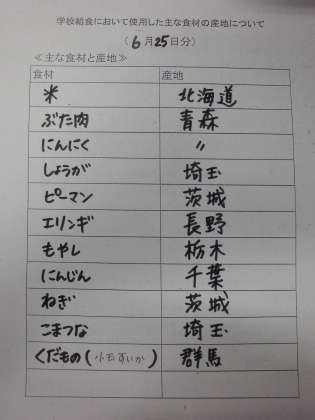 学校給食において使用した主な食材の産地について
(6月25日分)
≪主な食材と産地≫
食材 産地
米 北海道
ぶた肉 青森
にんにく 〃
しょうが 埼玉
ピーマン 茨城
エリンギ 長野
もやし 栃木
にんじん 千葉
ねぎ 茨城
こまつな 埼玉
くだもの(小玉すいか) 群馬